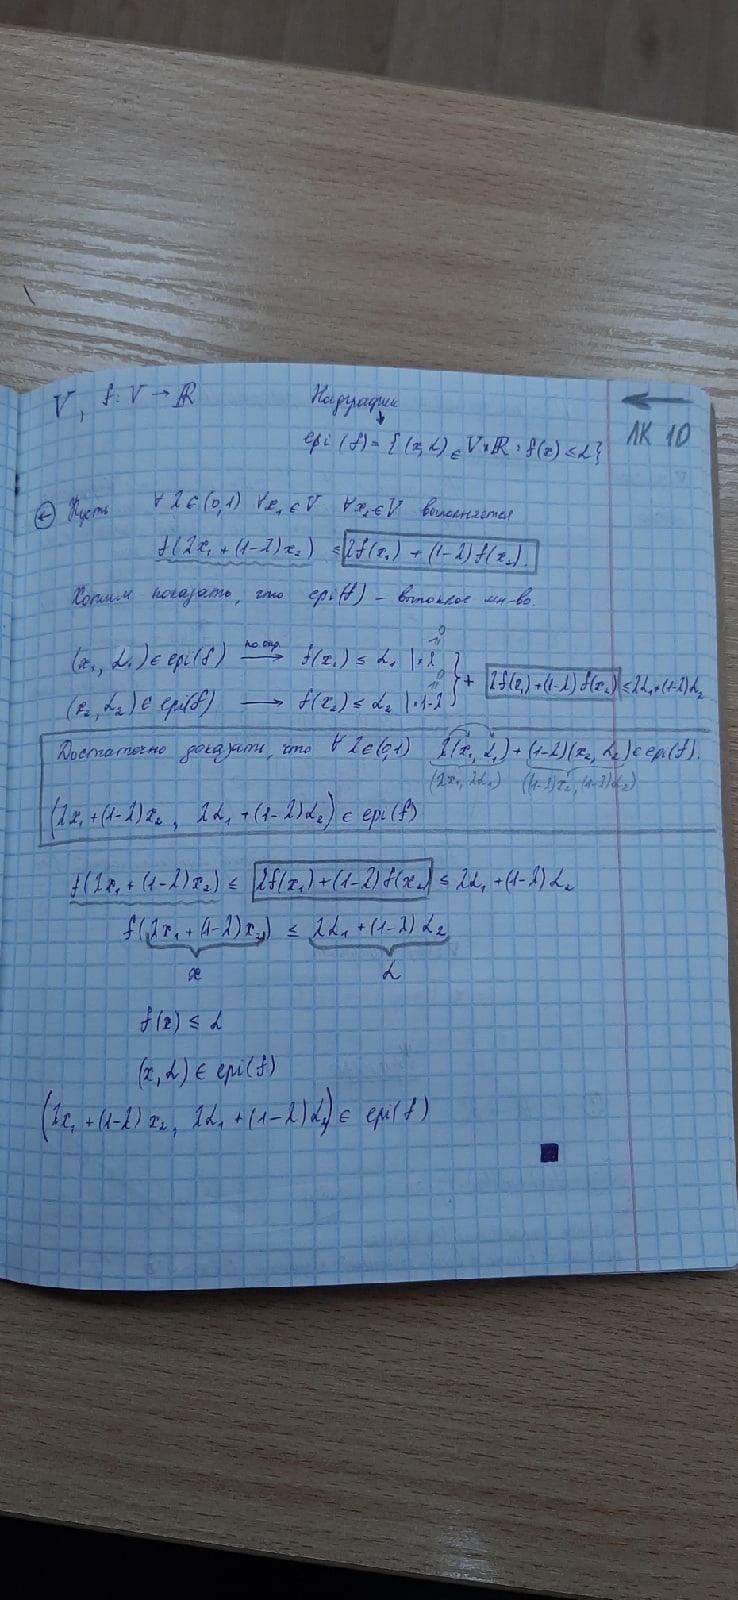 V, f: V → ℝ
Надграфик
ЛК 10
epi (f) = {(x, α) ∈ V×ℝ : f(x) ≤ α}
(←) Пусть ∀ λ ∈ (0,1) ∀x₁ ∈ V ∀x₂ ∈ V выполняется
f(λx₁ + (1-λ)x₂) ≤ λf(x₁) + (1-λ)f(x₂).
Хотим показать, что epi(f) – выпуклое мн-во.
(x₁, α₁) ∈ epi(f) —по опр.→ f(x₁) ≤ α₁ | · λ
(x₂, α₂) ∈ epi(f) → f(x₂) ≤ α₂ | · 1-λ } + λf(x₁)+(1-λ)f(x₂) ≤ λα₁+(1-λ)α₂
Достаточно доказать, что ∀ λ∈(0,1) λ(x₁, α₁) + (1-λ)(x₂, α₂) ∈ epi(f).
(λx₁, λα₁) ((1-λ)x₂, (1-λ)α₂)
(λx₁ + (1-λ)x₂, λα₁ + (1-λ)α₂) ∈ epi(f)
f(λx₁ + (1-λ)x₂) ≤ λf(x₁) + (1-λ)f(x₂) ≤ λα₁ + (1-λ)α₂
f(λx₁ + (1-λ)x₂) ≤ λα₁ + (1-λ)α₂
x α
f(x) ≤ α
(x, α) ∈ epi(f)
(λx₁ + (1-λ)x₂, λα₁ + (1-λ)α₂) ∈ epi(f)